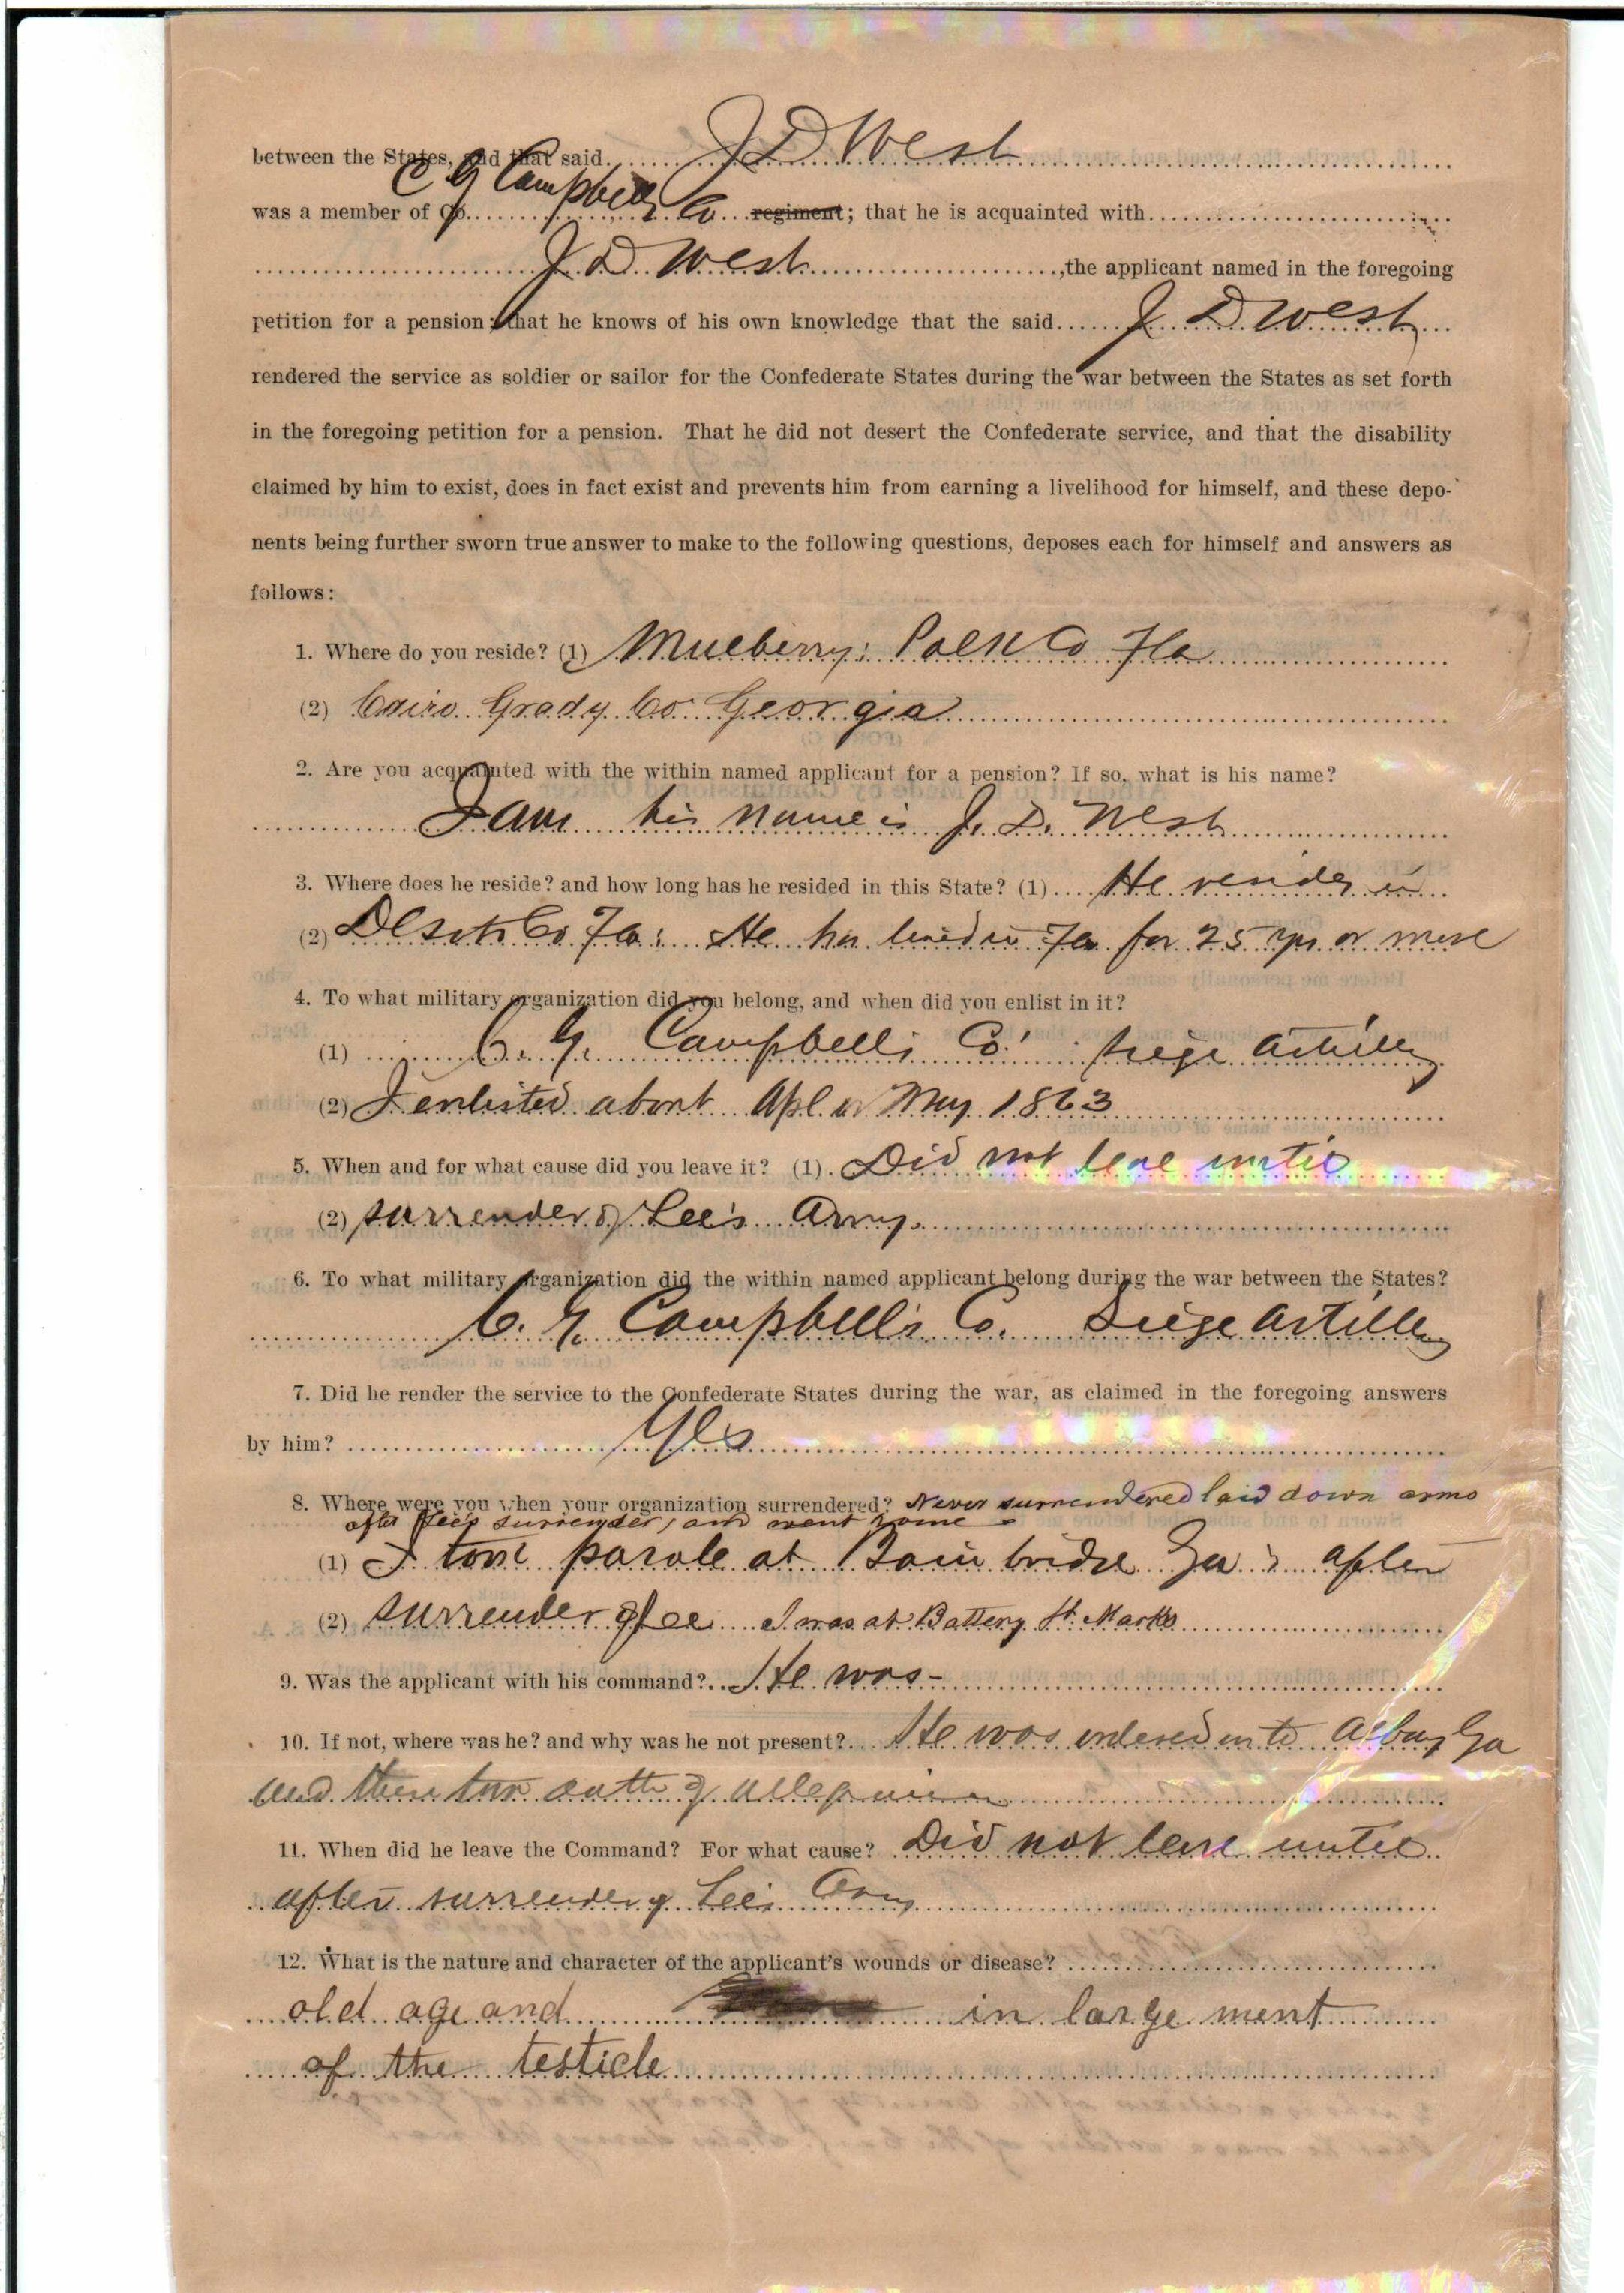 between the States, and that said J D West
C G Campbells
was a member of Co. Co regiment; that he is acquainted with
J D West, the applicant named in the foregoing
petition for a pension; that he knows of his own knowledge that the said J D West
rendered the service as soldier or sailor for the Confederate States during the war between the States as set forth
in the foregoing petition for a pension. That he did not desert the Confederate service, and that the disability
claimed by him to exist, does in fact exist and prevents him from earning a livelihood for himself, and these depo-
nents being further sworn true answer to make to the following questions, deposes each for himself and answers as
follows:
1. Where do you reside? (1) Mulberry; Polk Co Fla
(2) Cairo Grady Co Georgia
2. Are you acquainted with the within named applicant for a pension? If so, what is his name?
I am his name is J. D. West
3. Where does he reside? and how long has he resided in this State? (1) He resides in
(2) DeSoto Co Fla: He has lived in Fla for 25 yrs or more
4. To what military organization did you belong, and when did you enlist in it?
(1) C. G. Campbell's Co. siege Artillery
(2) I enlisted about Apl or May 1863
5. When and for what cause did you leave it? (1) Did not leave until
(2) surrender of Lee's Army.
6. To what military organization did the within named applicant belong during the war between the States?
C. G. Campbell's Co. Siege Artillery
7. Did he render the service to the Confederate States during the war, as claimed in the foregoing answers
by him? Yes
8. Where were you when your organization surrendered? Never surrendered laid down arms
after Lee's surrender, and went home
(1) I took parole at Bainbridge Ga after
(2) surrender of Lee I was at Battery St. Marks
9. Was the applicant with his command? He was-
10. If not, where was he? and why was he not present? He was ordered to Albany Ga
and there took oath of allegiance
11. When did he leave the Command? For what cause? Did not leave until
after surrender of Lee's Army
12. What is the nature and character of the applicant's wounds or disease?
old age and in large ment
of the testicle